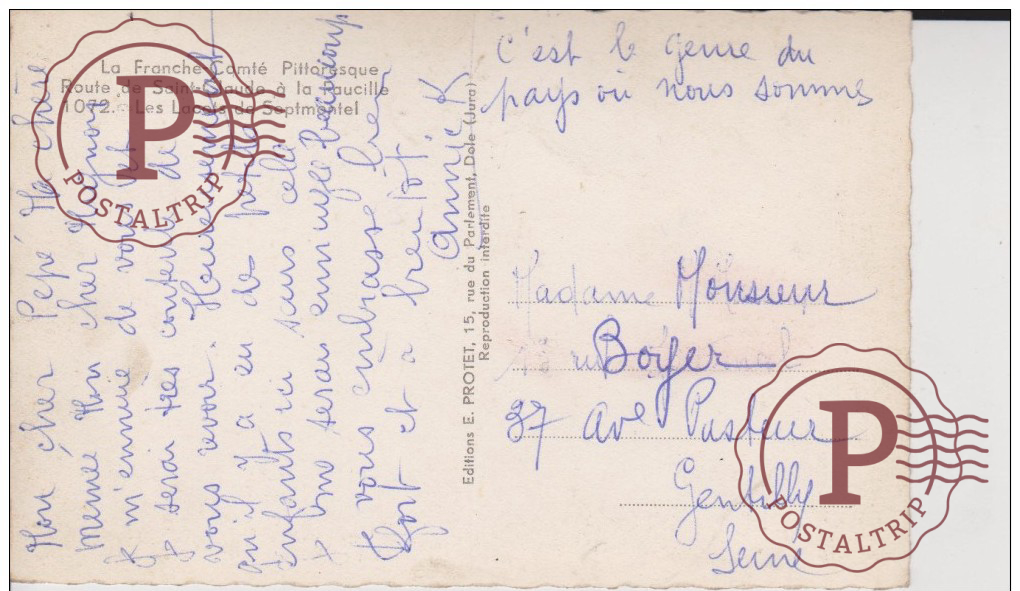 La Franche-Comté Pittoresque
Route de Saint-Claude à la Faucille
1072. - Les Lacets de Septmontel
Mon cher Pépé Ma chère
mémée Mon cher
m'ennuie de vous et
serai très content de
vous revoir. Heureusement
qu'il y a eu des petits
enfants ici sans cela
me serais ennuyée beaucoup
vous embrasse bien
fort et à bientôt.
Annie K
Editions E. PROTET, 15, rue du Parlement, Dole (Jura)
Reproduction interdite
C'est le genre du
pays où nous sommes
Madame Monsieur
Boyer
37 Ave Pasteur
Gentilly
Seine
POSTALTRIP
POSTALTRIP